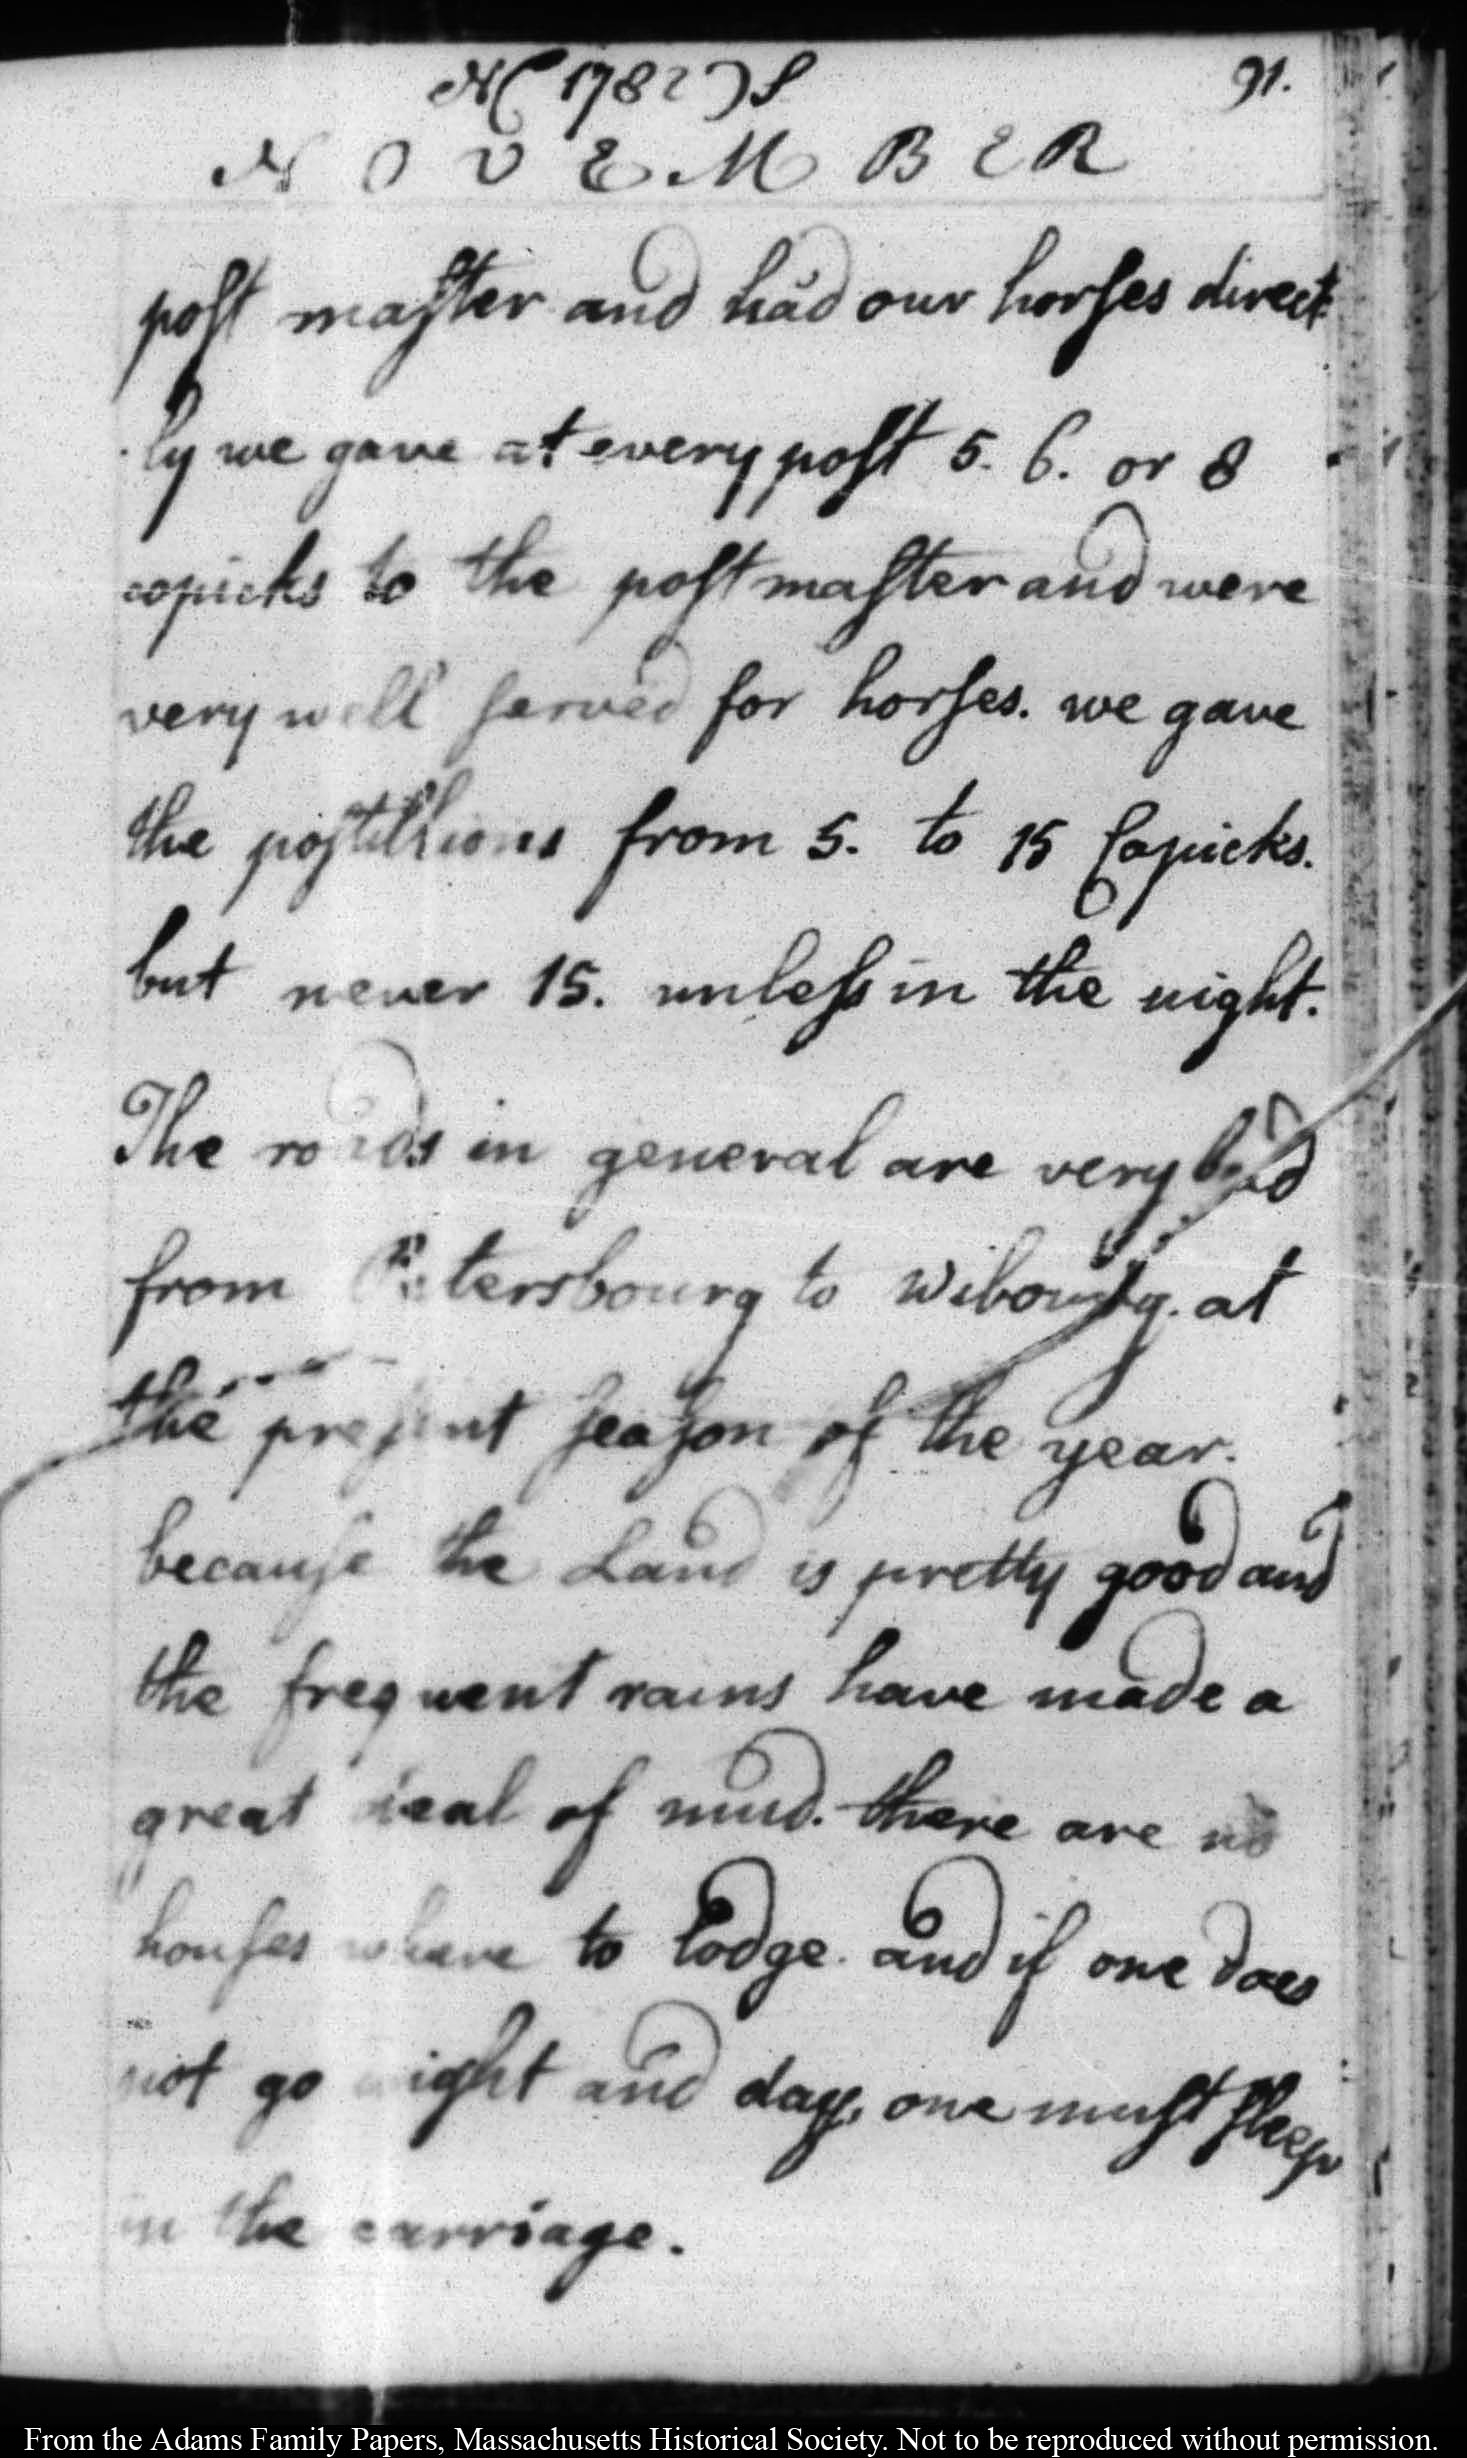 N( 1782 )S 91.
NOVEMBER
post master and had our horses direct
ly we gave at every post 5. 6. or 8
copicks to the post master and were
very well served for horses. we gave
the postillions from 5. to 15 Copicks.
but never 15. unless in the night.
The roads in general are very bad
from Petersbourg to Wibourg. at
the present season of the year.
because the Land is pretty good and
the frequent rains have made a
great deal of mud. there are no
houses where to lodge. and if one does
not go night and day, one must sleep
in the carriage.
From the Adams Family Papers, Massachusetts Historical Society. Not to be reproduced without permission.